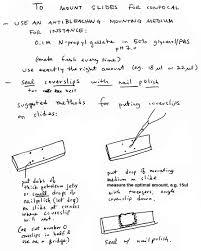 TO MOUNT SLIDES FOR CONFOCAL
- USE AN ANTIBLEACHING MOUNTING MEDIUM
FOR INSTANCE:
0.1M N-propyl gallate in 50% glycerol/PBS
pH 7.
(make fresh every time)
use exactly the right amount (eg. 18 ul or 22 ul)
- Seal coverslips with nail polish
suggested methods for putting coverslips
on slides:
put dabs of
thick petroleum jelly
or small drop of
nailpolish (let dry)
on slide at corners
where coverslip
will sit.
(or cut number 0
coverslips in half &
use as a bridge)
put drop of mounting
medium on slide
measure the optimal amount, e.g. 15ul
with tweezers, angle
coverslip down.
seal w/ nail polish.